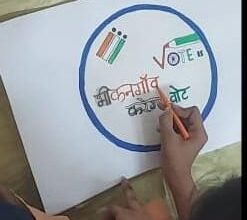 VOTE
भीकनगाँव
करेगा वोट